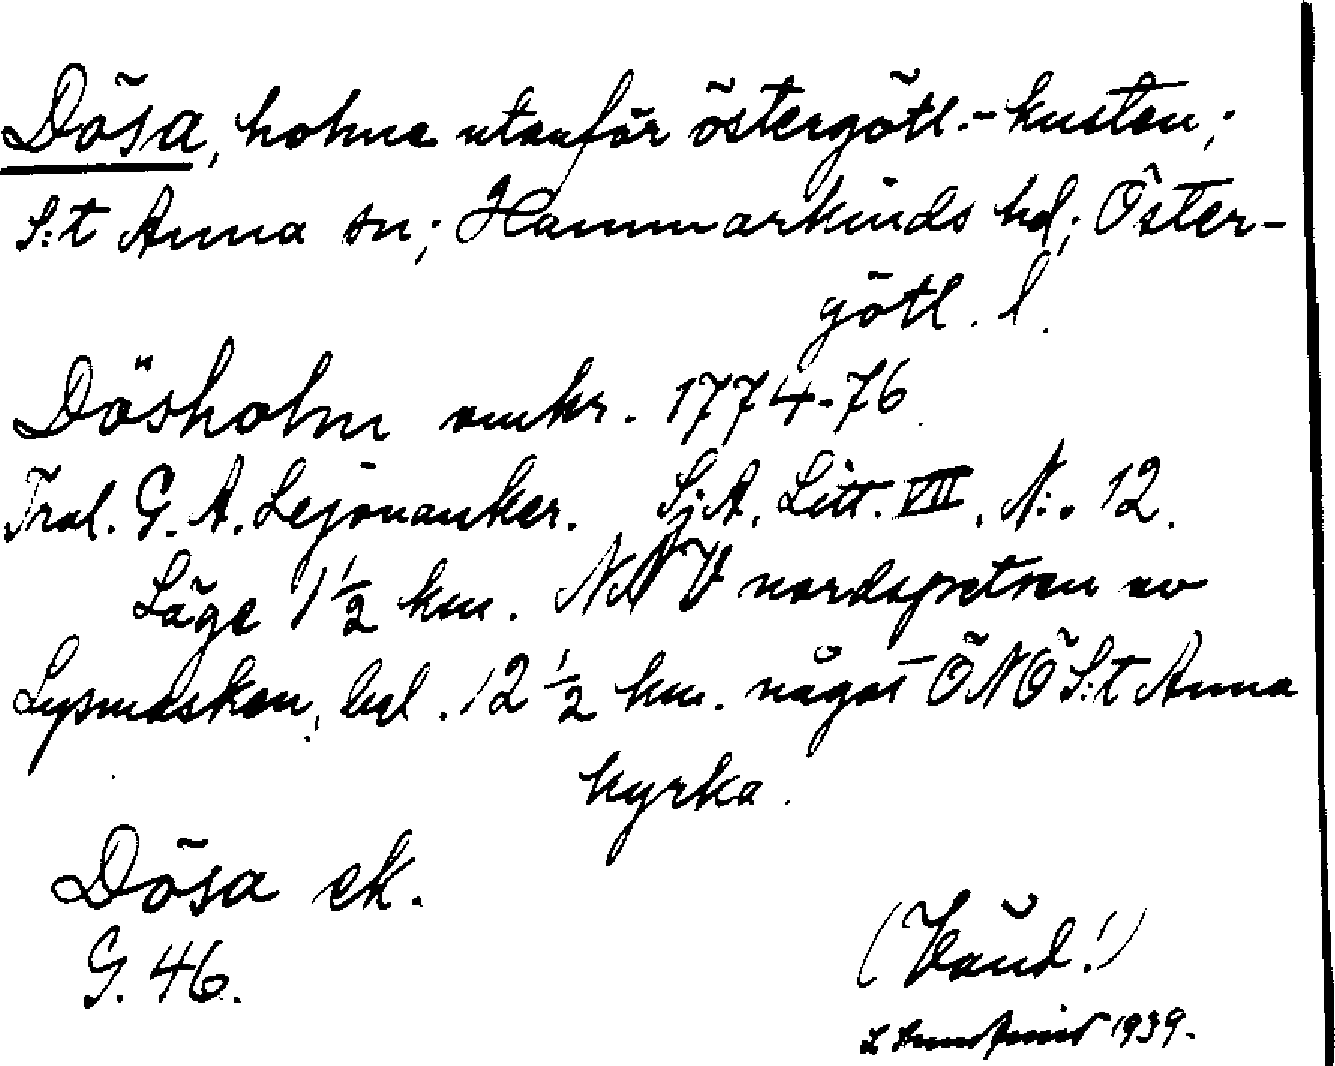 Dösa, holme utanför östergötl.-kusten;
S:t Anna sn; Hammarkinds hd; Öster-
götl. l.
Dösholm omkr. 1774-76.
Tral. G. A. Lejonanker. Sj.A. Litt. VII, N:o 12.
Läge 1 1/2 km. NNV nordspetsen av
Lysmasken, bel. 12 1/2 km. något ÖNÖ S:t Anna
kyrka.
Dösa ek.
G. 46.
(Vänd!)
1939.